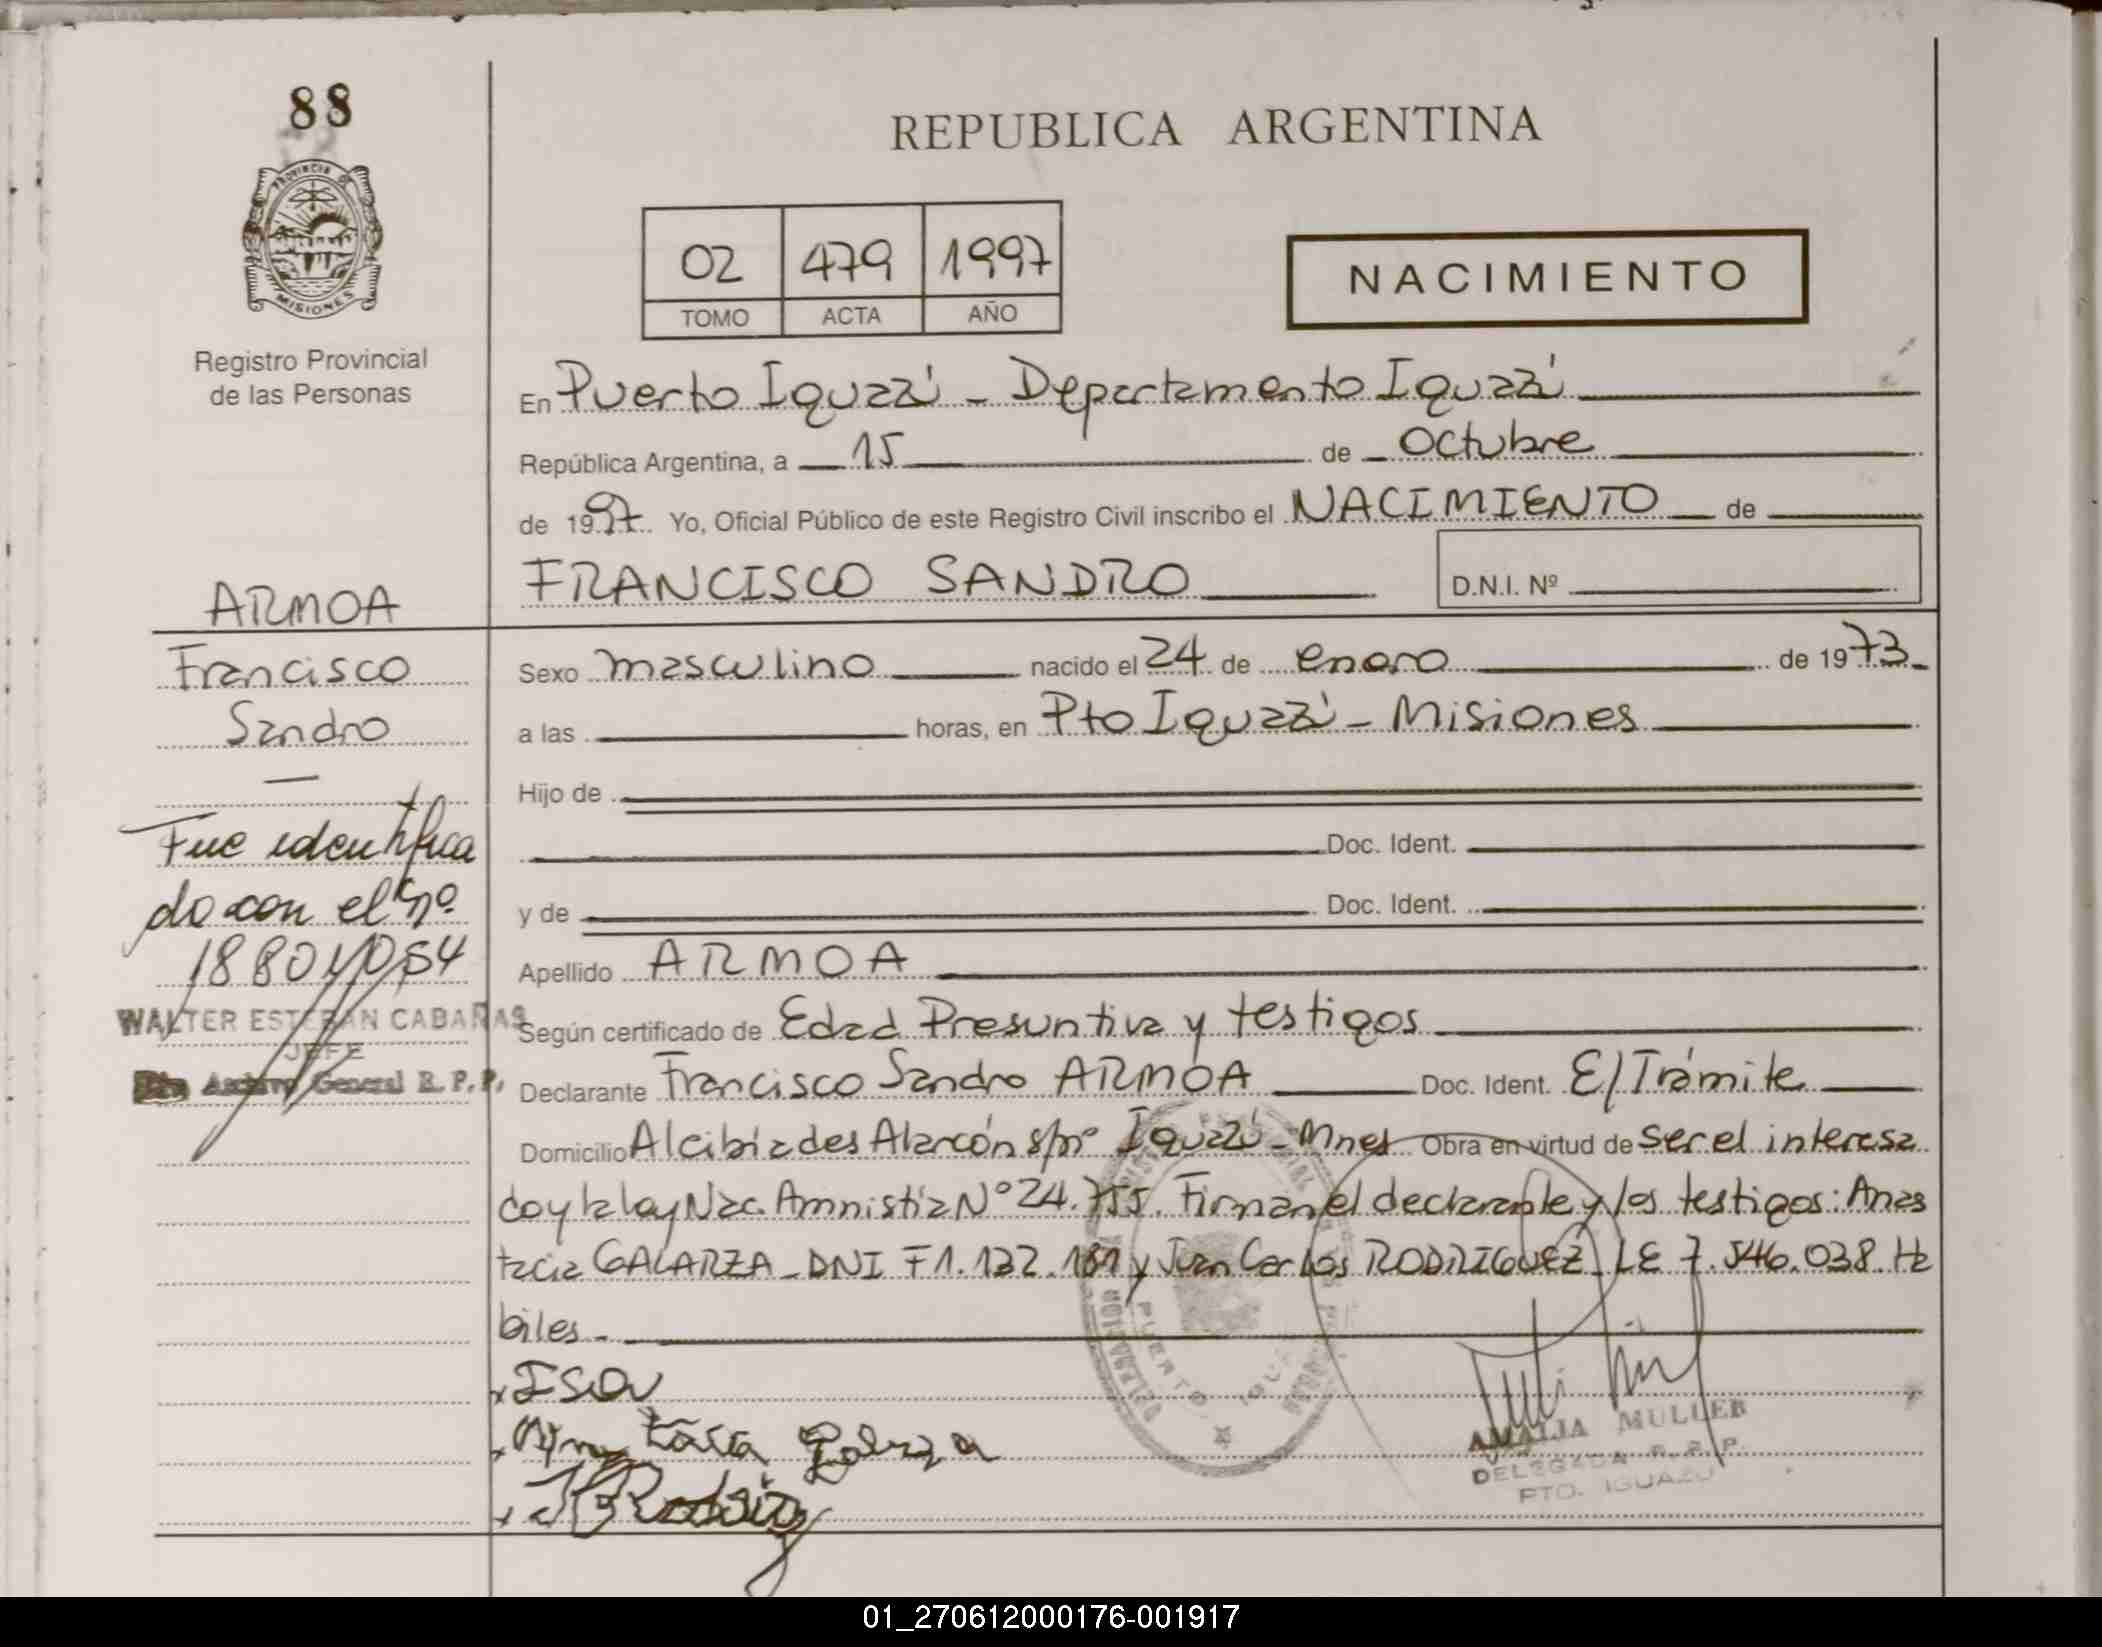 88
REPUBLICA ARGENTINA
PROVINCIA DE
MISIONES
Registro Provincial
de las Personas
02 479 1997
TOMO ACTA AÑO
NACIMIENTO
En Puerto Iguazú - Departamento Iguazú
República Argentina, a 15 de Octubre
de 1997 Yo, Oficial Público de este Registro Civil inscribo el NACIMIENTO de
FRANCISCO SANDRO D.N.I. Nº
ARMOA
Francisco
Sandro
Fue identifica
do con el nº
WALTER ESTEBAN CABAÑAS
JEFE
Archivo General R. P. P.
Sexo masculino nacido el 24 de enero de 1973
a las horas, en Pto Iguazú - Misiones
Hijo de
Doc. Ident.
y de Doc. Ident.
Apellido ARMOA
Según certificado de Edad Presuntiva y testigos
Declarante Francisco Sandro ARMOA Doc. Ident. E/Trámite
Domicilio Alcibíades Alarcón s/nº Iguazú - Mnes Obra en virtud de ser el interesa
do y la ley Nac. Amnistía Nº 24.755. Firman el declarante y los testigos: Anas
tacia GALARZA - DNI F1.132.181 y Juan Carlos RODRIGUEZ LE 7.546.038. Há
biles -
AMALIA MULLER
DELEGADA R. P. P.
PTO. IGUAZU
01_270612000176-001917